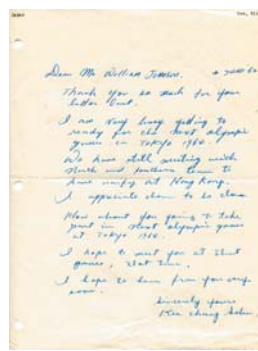 Dear Mr William Johnson.
Thank you so much for your
letter
I am very busy getting to
ready for the next olympic
games in Tokyo 1964.
We have still meeting with
North and southern team to
have unify at Hong Kong.
I appreciate
How about you going to take
part in next olympic games
at Tokyo 1964.
I hope to meet you at that
games, that time.
I hope to hear from you very
soon.
Sincerely yours